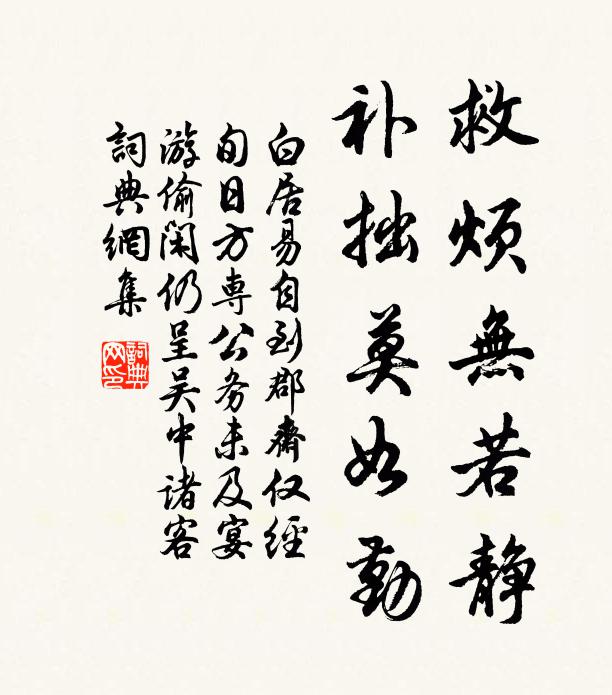 救烦無若静
补拙莫如勤
白居易自到郡齋仅經
旬日方専公务未及宴
游偷閑仍呈吴中诸客
詞典網集
詞典
网印